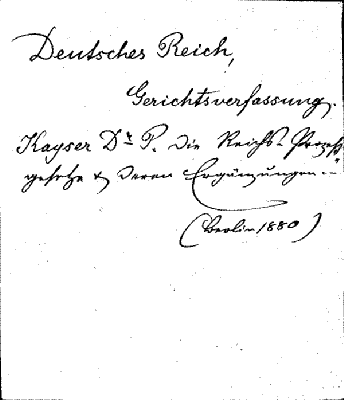 Deutsches Reich,
Gerichtsverfassung.
Kayser Dr. P. die Reichs-Prozeß-
gesetze & deren Ergänzungen.
(Berlin 1880)